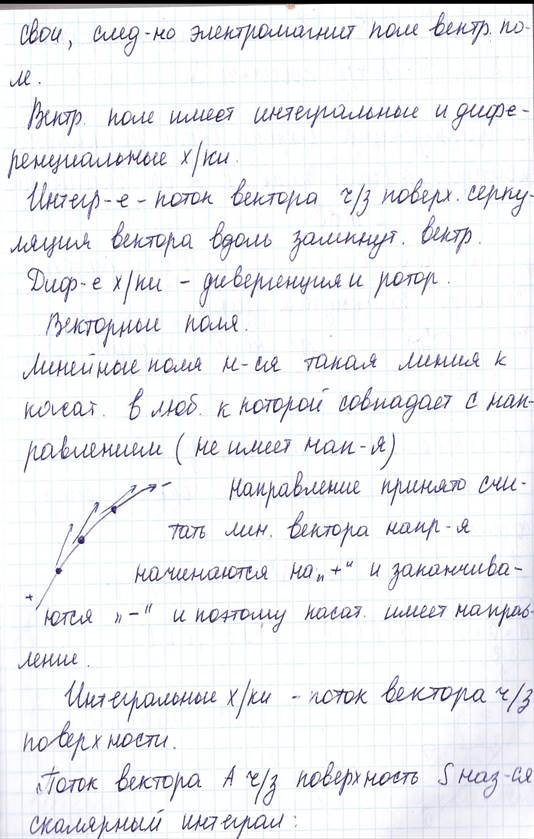 свои, след-но электромагнит поле вектр. по-
ле.
Вектр. поле имеет интегральные и дифе-
ренциальные х/ки.
Интегр-е - поток вектора ч/з поверх. серку-
ляция вектора вдоль замкнут. вектр.
Диф-е х/ки - дивергенция и ротор.
Векторные поля.
Линейные поля н-ся такая линия к
касат. в люб. к которой совпадает с нап-
равлением (не имеет нап-я)
+ -
Направление принято счи-
тать лин. вектора напр-я
начинаются на „+“ и заканчива-
ются „-“ и поэтому касат. имеет направ-
ление.
Интегральные х/ки - поток вектора ч/з
поверхности.
Поток вектора А ч/з поверхность S наз-ся
скалярный интеграл: